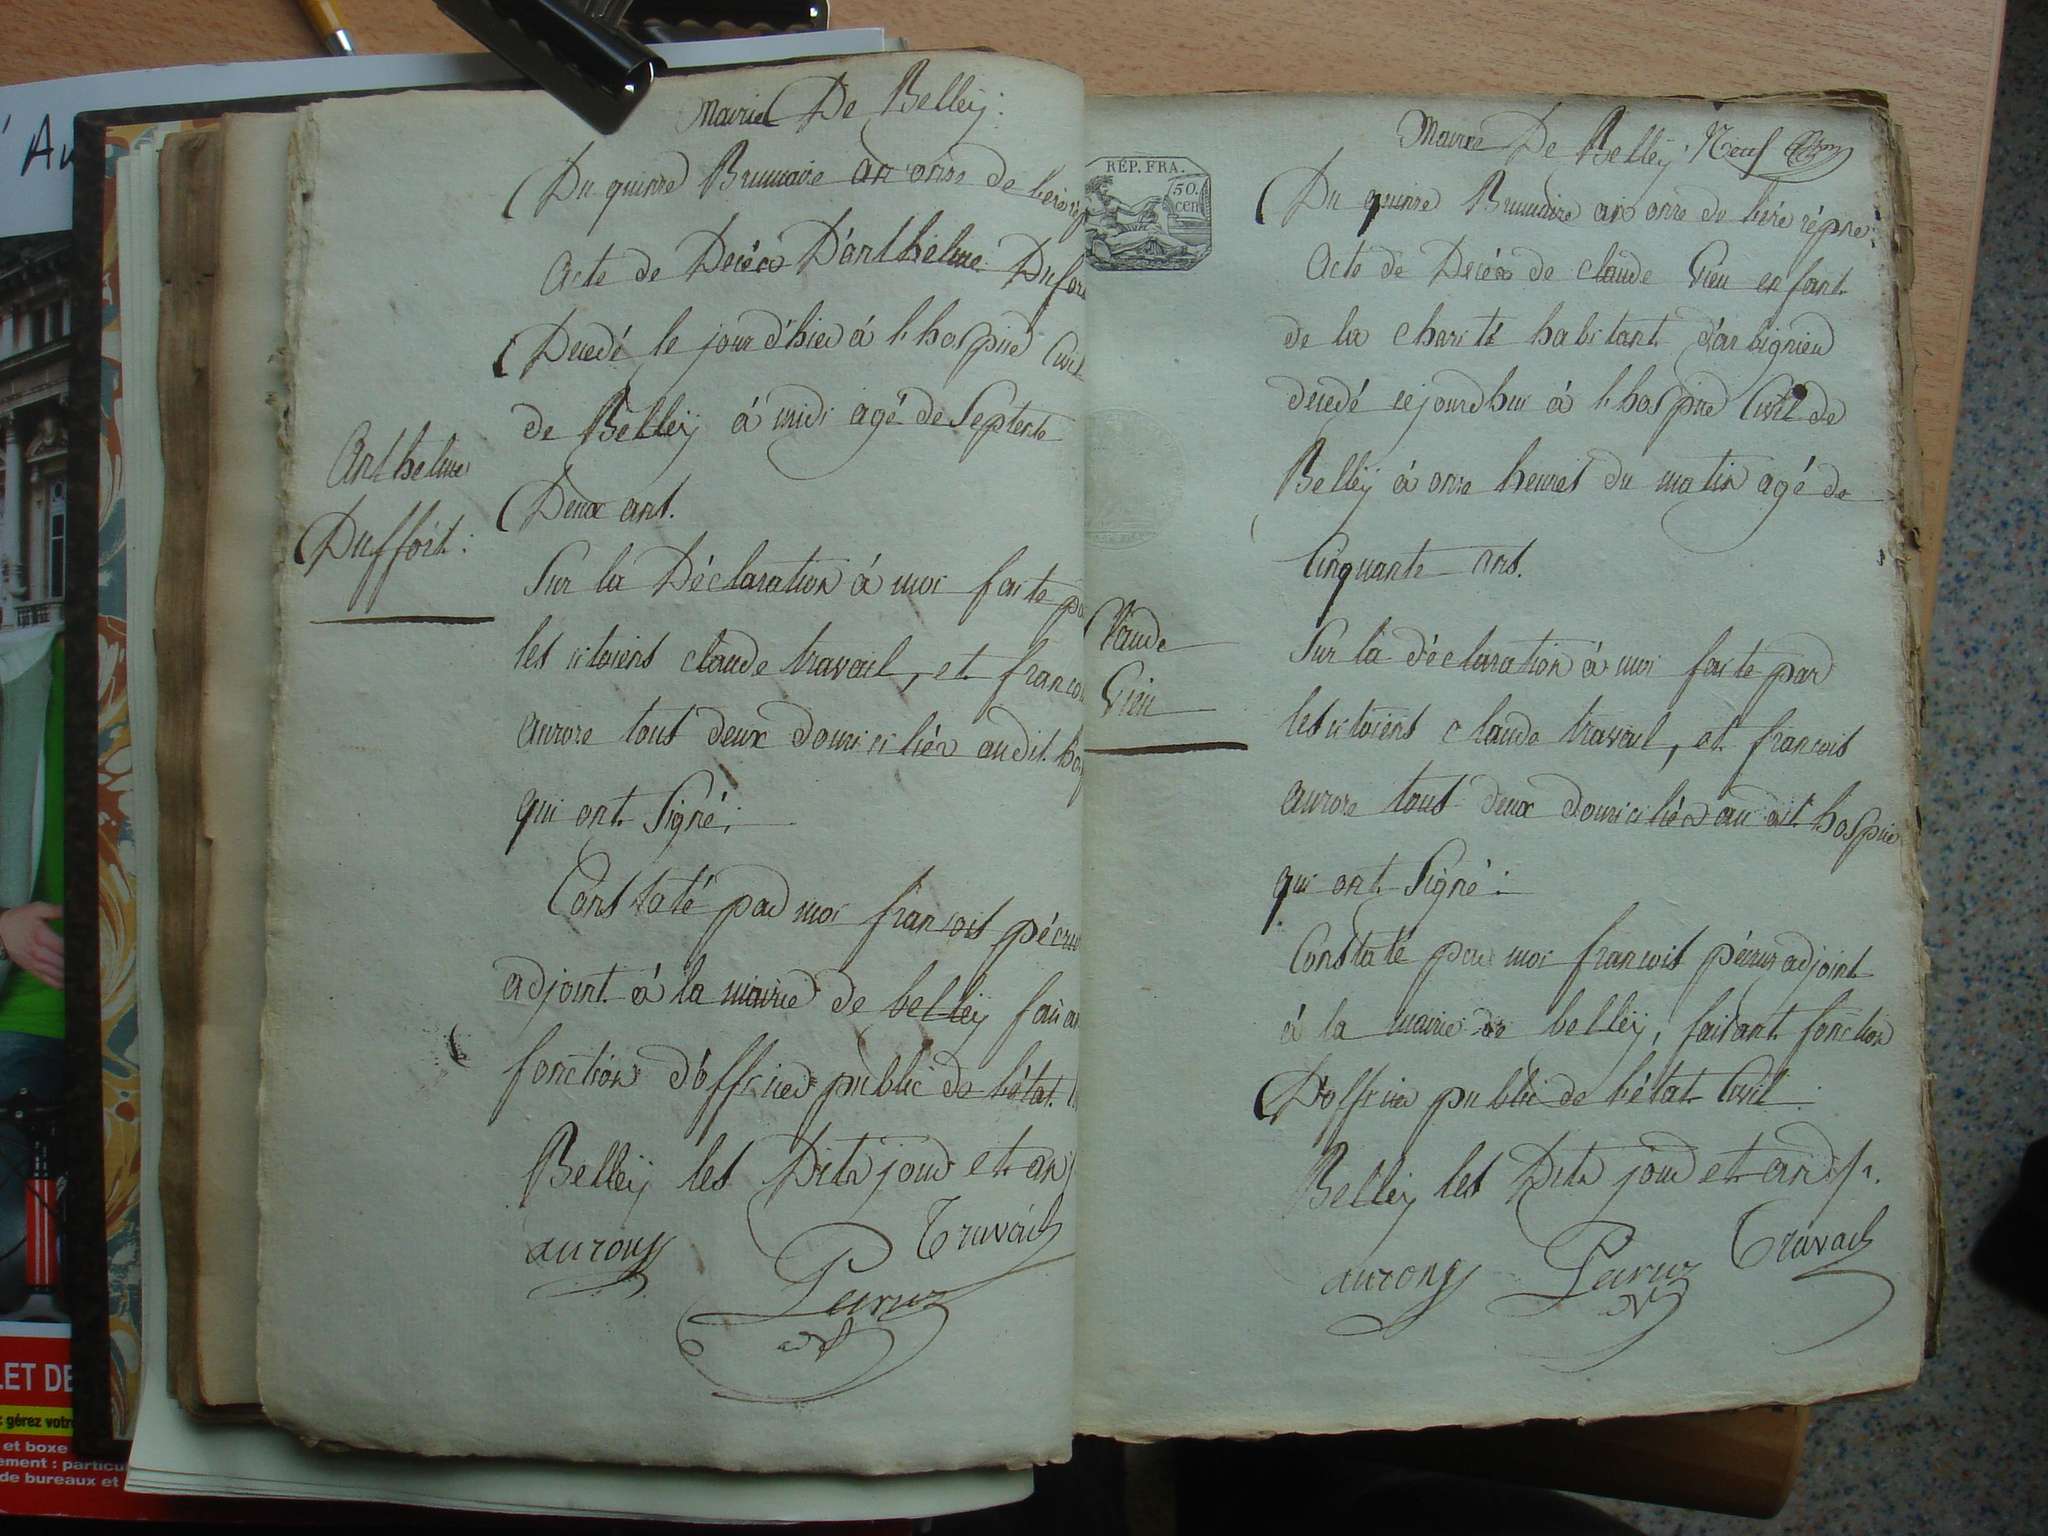 Mairie De Belleÿ:
Du quinze Brumaire an onze de l'ere rép
Acte de Decès D'anthelme Duffor
Decedé le jour d'hier à l'hospice Civil
de Belleÿ à midi agé de Septente
Deux ans.
Anthelme
Duffort:
Sur la Déclaration à moi faite pa
les citoiens claude travail, et francoi
aurore tous deux domiciliés audit hos
qui ont Signé;
Constaté par moi francois pécru
adjoint à la mairie de belleÿ faisan
fonction d'officier public de l'état
Belleÿ les Dits jour et an
aurong Travail
Pecruz
Mairie De Belleÿ: Neuf
RÉP. FRA.
50.
cen
Du quinze Brumaire an onze de l'ere répne:
Acte de Decés de claude Vieu enfant
de la charité habitant d'arbignieu
decedé cejourdhui à l'hospice Civil de
Belleÿ à onze heures du matin agé de
Cinquante ans.
Claude
Vieu
Sur la déclaration à moi faite par
les citoiens claude travail, et francois
aurore tous deux domiciliés au dit hospice
qui ont Signé:
Constaté par moi francois pécruz adjoint
à la mairie de belleÿ, faisant fonction
D'officier public de l'état Civil
Belleÿ les Dits jour et an
aurong Pecruz Travail
LET DE
: gérez votr
et boxe
ement : particu
de bureaux et